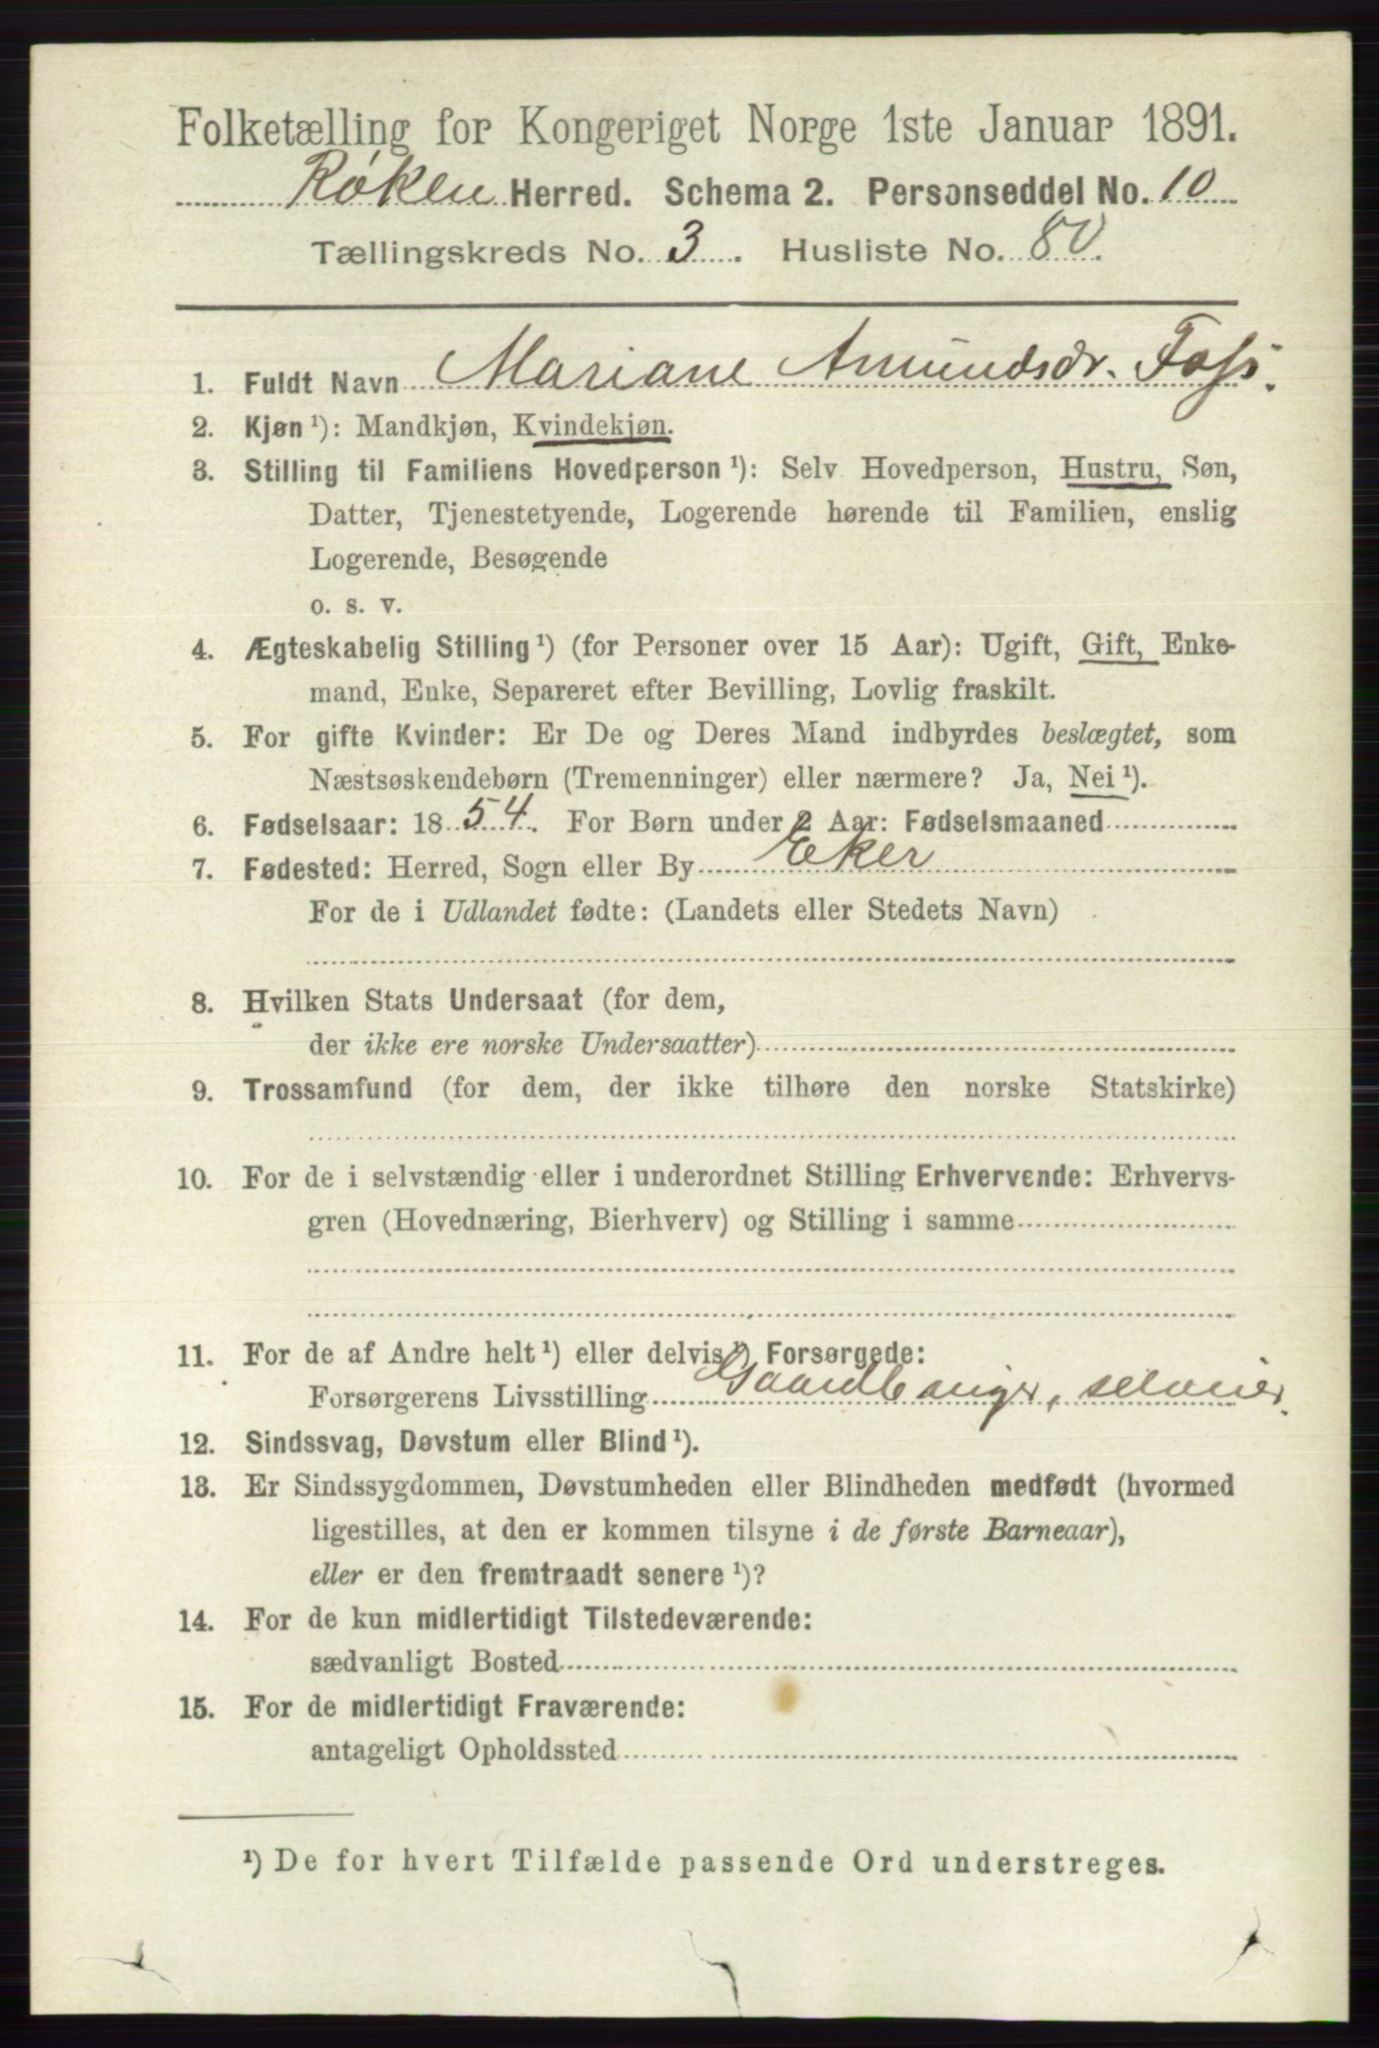 Folketælling for Kongeriget Norge 1ste Januar 1891.
Røken Herred. Schema 2. Personseddel No. 10
Tællingskreds No. 3. Husliste No. 80.
1. Fuldt Navn Mariane Amundsdr. Foss.
2. Kjøn ¹): Mandkjøn, Kvindekjøn.
3. Stilling til Familiens Hovedperson ¹): Selv Hovedperson, Hustru, Søn,
Datter, Tjenestetyende, Logerende hørende til Familien, enslig
Logerende, Besøgende
o. s. v.
4. Ægteskabelig Stilling ¹) (for Personer over 15 Aar): Ugift, Gift, Enke-
mand, Enke, Separeret efter Bevilling, Lovlig fraskilt.
5. For gifte Kvinder: Er De og Deres Mand indbyrdes beslægtet, som
Næstsøskendebørn (Tremenninger) eller nærmere? Ja, Nei ¹).
6. Fødselsaar: 1854. For Børn under 2 Aar: Fødselsmaaned
7. Fødested: Herred, Sogn eller By Eker
For de i Udlandet fødte: (Landets eller Stedets Navn)
8. Hvilken Stats Undersaat (for dem,
der ikke ere norske Undersaatter)
9. Trossamfund (for dem, der ikke tilhøre den norske Statskirke)
10. For de i selvstændig eller i underordnet Stilling Erhvervende: Erhvervs-
gren (Hovednæring, Bierhverv) og Stilling i samme
11. For de af Andre helt ¹) eller delvis ¹) Forsørgede:
Forsørgerens Livsstilling Gaardbruger, selveier.
12. Sindssvag, Døvstum eller Blind ¹).
13. Er Sindssygdommen, Døvstumheden eller Blindheden medfødt (hvormed
ligestilles, at den er kommen tilsyne i de første Barneaar),
eller er den fremtraadt senere ¹)?
14. For de kun midlertidigt Tilstedeværende:
sædvanligt Bosted
15. For de midlertidigt Fraværende:
antageligt Opholdssted
¹) De for hvert Tilfælde passende Ord understreges.